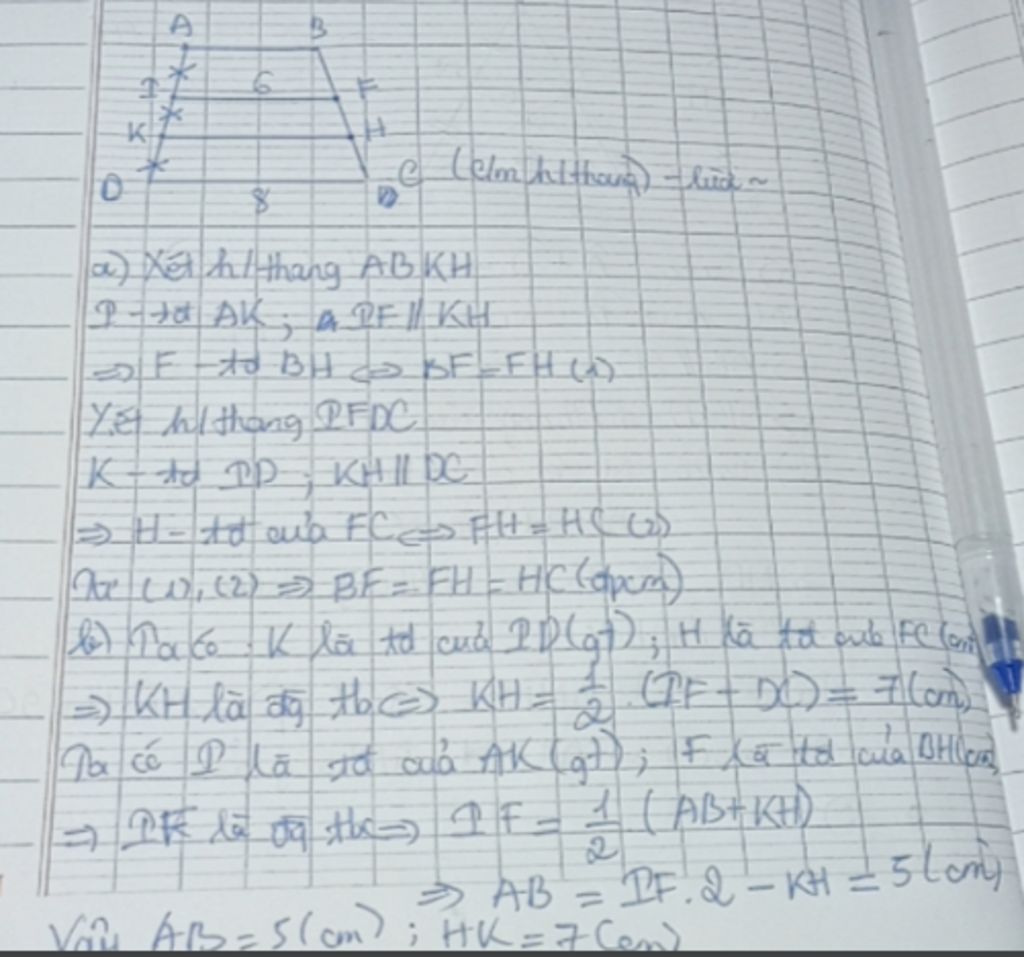 A B
I 6 F
K H
D 8 C (c/m h/thang)
a) Xét h/thang ABKH
I - tđ AK; IF // KH
=> F - tđ BH <=> BF = FH (1)
Xét h/thang IFDC
K - tđ ID; KH // DC
=> H - tđ của FC <=> FH = HC (2)
Từ (1), (2) => BF = FH = HC (đpcm)
b) Ta có: K là tđ của ID (gt); H là tđ của FC (cm
=> KH là đg tb <=> KH = 1/2 (IF + DC) = 7 (cm)
Ta có I là tđ của AK (gt); F là tđ của BH (cm)
=> IF là đg tb => IF = 1/2 (AB + KH)
=> AB = IF.2 - KH = 5 (cm)
Vậy AB = 5 (cm); HK = 7 (cm)